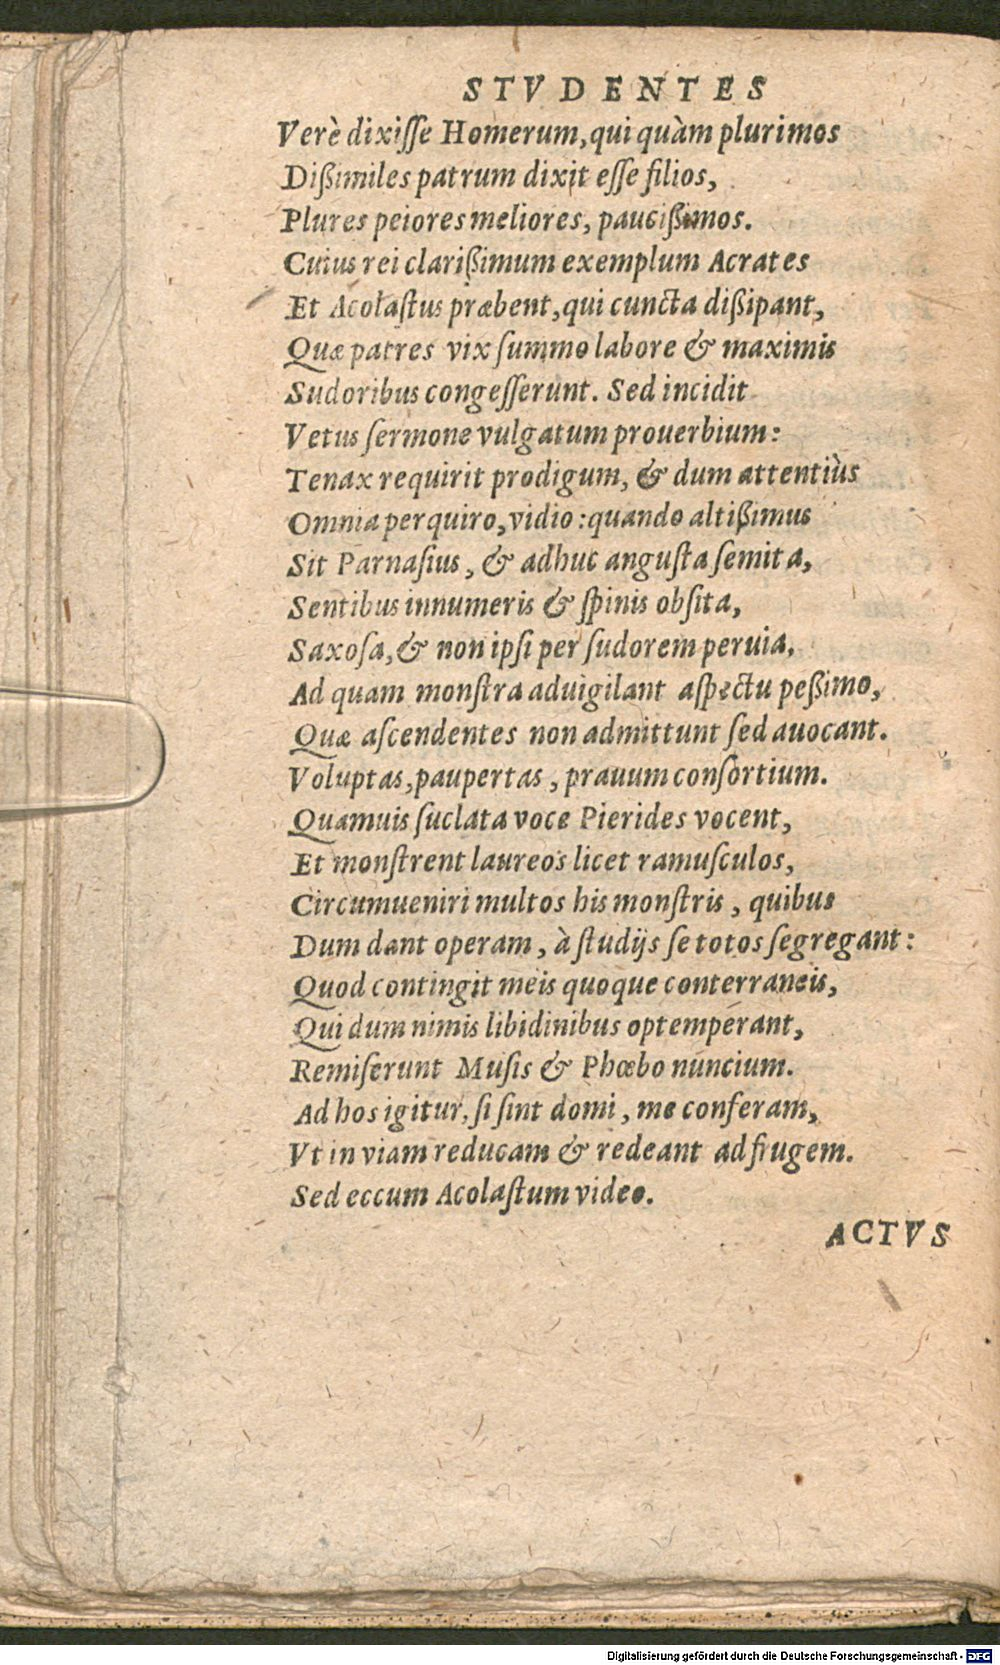 STVDENTES
Verè dixiſſe Homerum, qui quàm plurimos
Dißimiles patrum dixit eſſe filios,
Plures peiores meliores, paucißimos.
Cuius rei clarißimum exemplum Acrates
Et Acolaſtus præbent, qui cuncta dißipant,
Quæ patres vix ſummo labore & maximis
Sudoribus congeſſerunt. Sed incidit
Vetus ſermone vulgatum prouerbium:
Tenax requirit prodigum, & dum attentiùs
Omnia perquiro, vidio: quando altißimus
Sit Parnaſius, & adhuc anguſta ſemita,
Sentibus innumeris & ſpinis obſita,
Saxoſa, & non ipſi per ſudorem peruia,
Ad quam monſtra aduigilant aſpectu peßimo,
Quæ aſcendentes non admittunt ſed auocant.
Voluptas, paupertas, prauum conſortium.
Quamuis ſuclata voce Pierides vocent,
Et monſtrent laureos licet ramuſculos,
Circumueniri multos his monſtris, quibus
Dum dant operam, à ſtudijs ſe totos ſegregant:
Quod contingit meis quoque conterraneis,
Qui dum nimis libidinibus optemperant,
Remiſerunt Muſis & Phœbo nuncium.
Ad hos igitur, ſi ſint domi, me conferam,
Vt in viam reducam & redeant ad frugem.
Sed eccum Acolaſtum video.
ACTVS
Digitalisierung gefördert durch die Deutsche Forschungsgemeinschaft - DFG